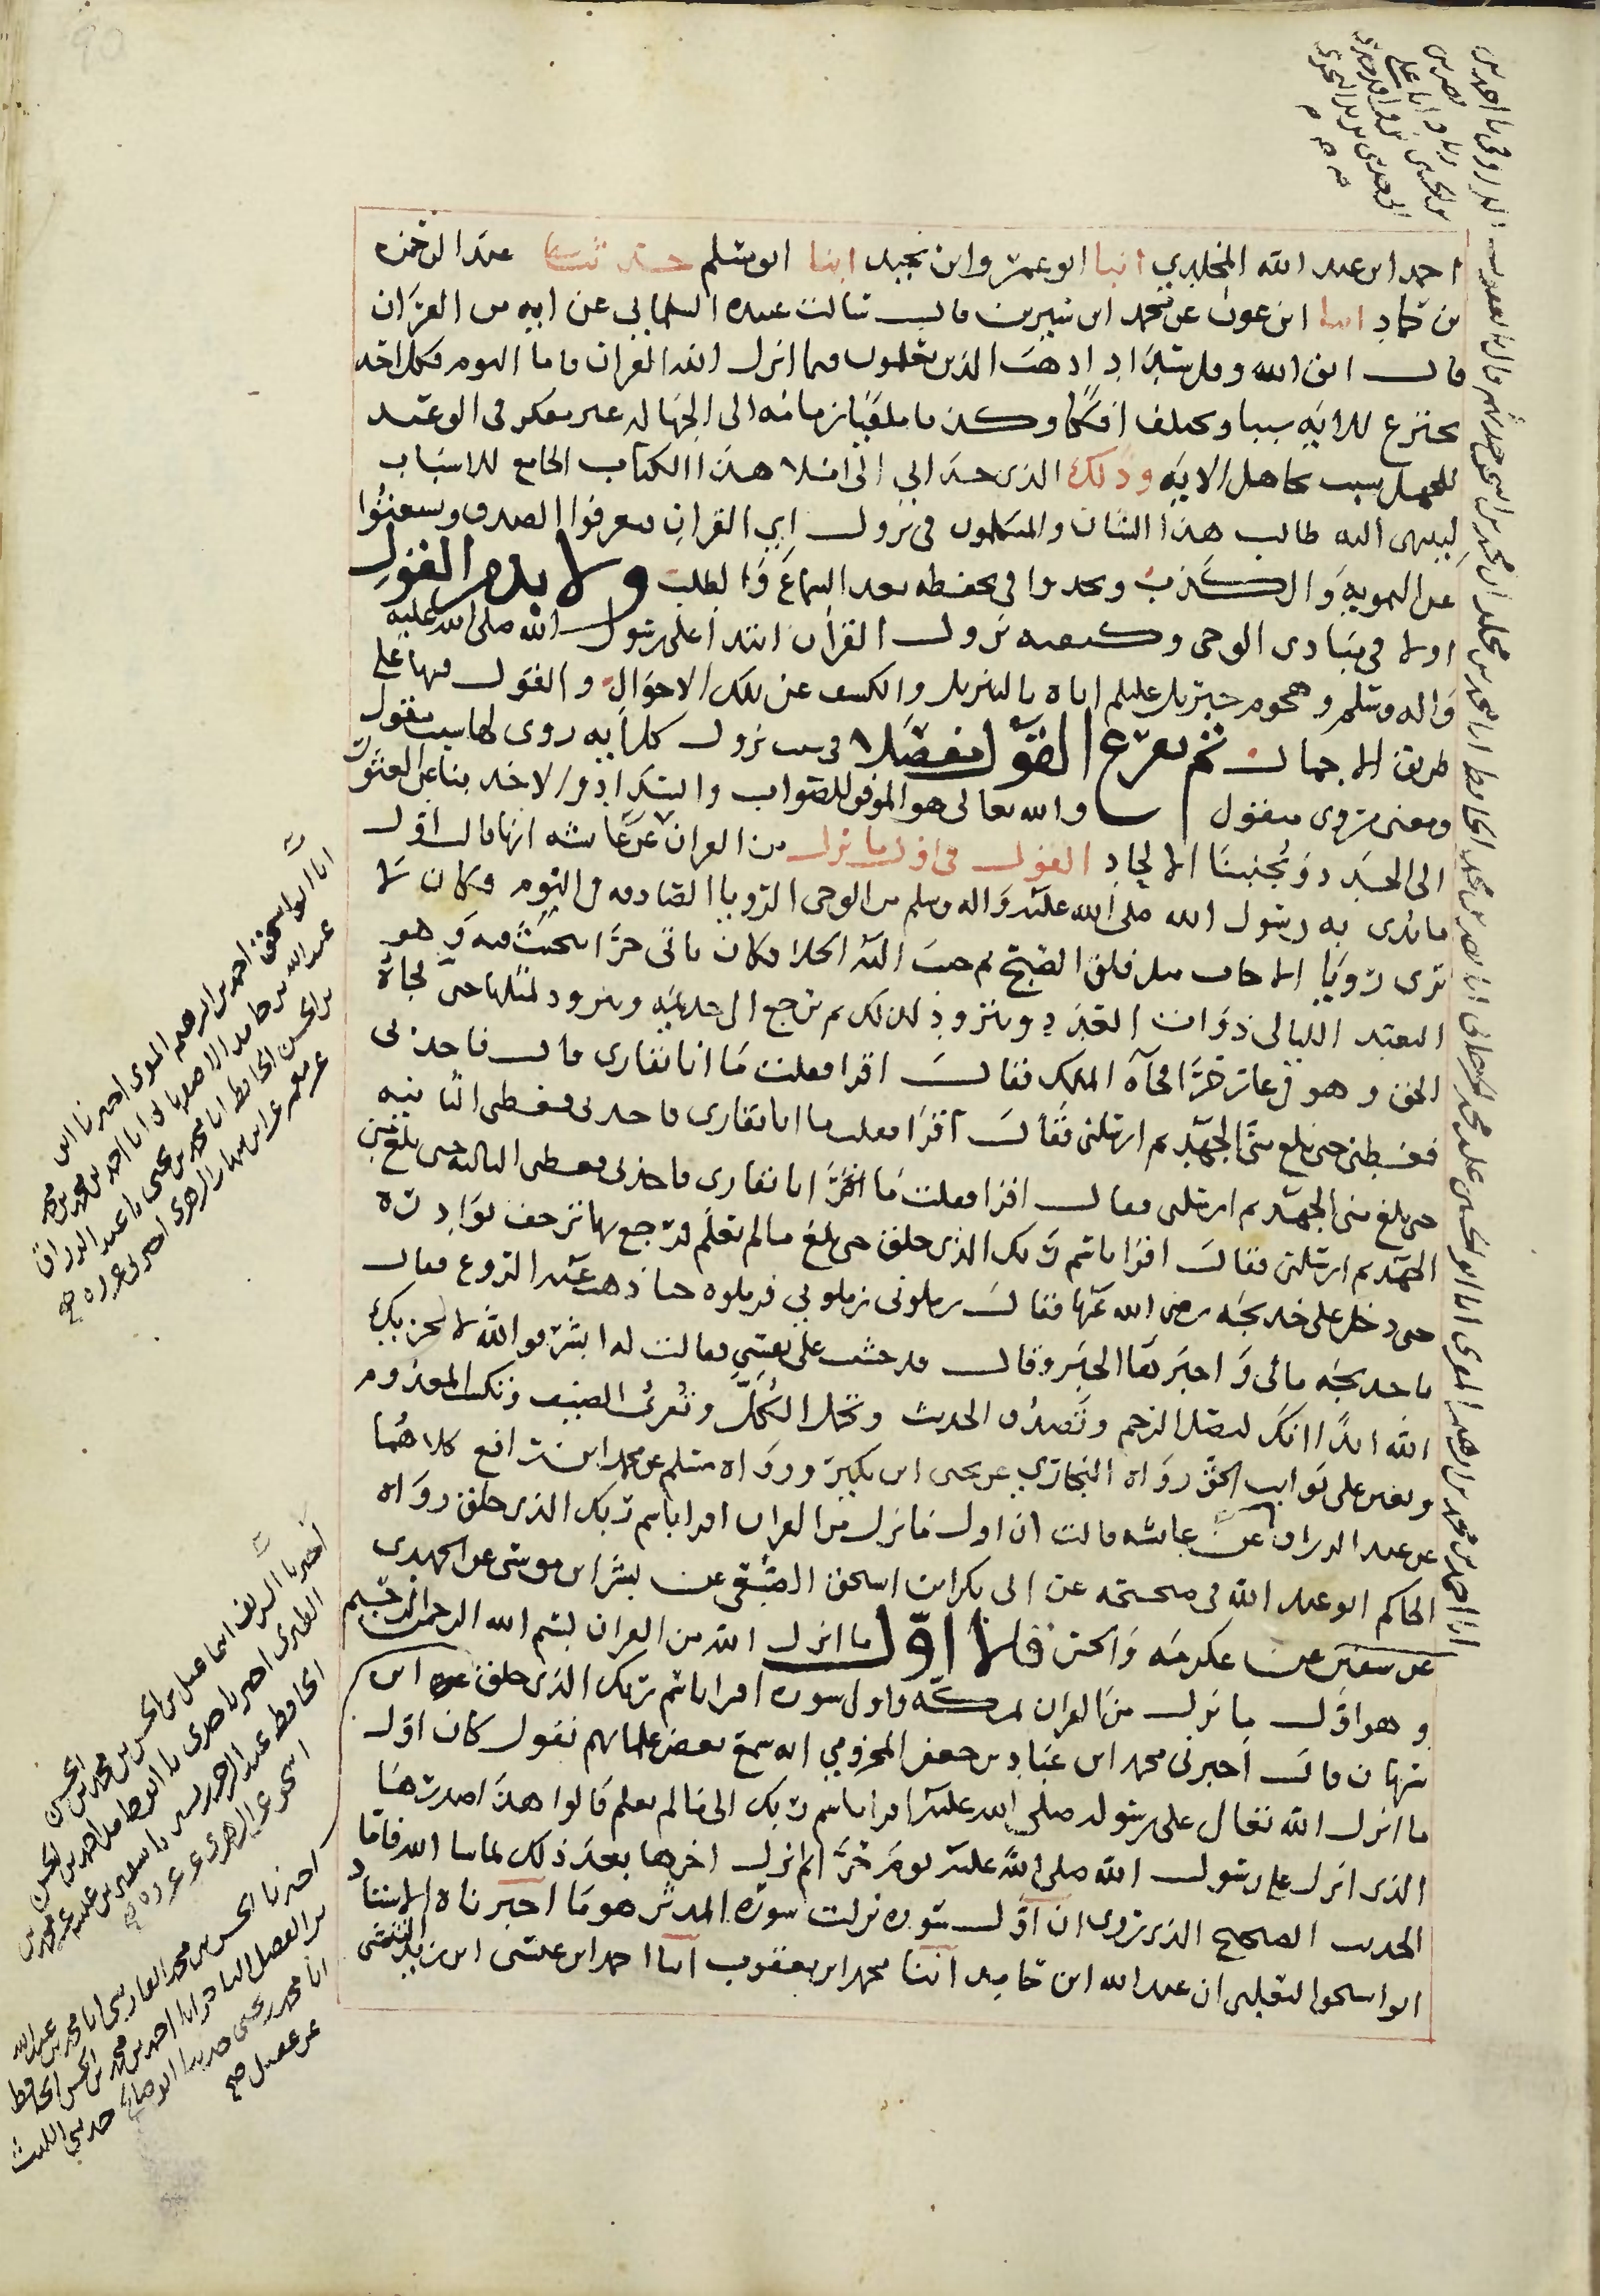 احمد ابن عبد الله المخلدي انبا ابو عمرو ابن نجيد ابنا ابو مسلم حدثنا عبد الرحمن
بن حماد ابنا ابن عون عن محمد ابن سيرين قال سالت عبيده السلماني عن ايه من القران
فقال اتق الله وقل سدادا ذهب الذين يعلمون فيما انزل الله القران واما اليوم فكل احد
يخترع للايه سببا ويختلف افكا وكذبا ملقيا زمامه الى الجهاله غير مفكر في الوعيد
للجهل بسبب الايه وذلك الذي حدا بي الى املا هذا الكتاب الجامع للاسباب
لينتهي اليه طالب هذا الشان والمتكلمون في نزول اي القران فيعرفوا الصدق ويستغنوا
عن التمويه والكذب ويجدوا في تحفظه بعد السماع والطلب ولا بد من القول
اولا في مبادي الوحي وكيفيه نزول القران ابتدا على رسول الله صلى الله عليه
واله وسلم وهجوم جبريل عليلم اياه بالتنزيل والكشف عن تلك الاحوال والقول فيها على
طريق الاجمال ثم نفرع القول مفصلا في سبب نزول كل ايه روي لها سبب مقول
ومعنى مروي منقول والله تعالى هو الموفق للصواب والسداد والاخذ بنا عن العثور
الى الجدد ويجنبنا الالحاد القول في اول ما نزل من القران عن عايشه انها قالت اول
ما بدي به رسول الله صلى الله عليه واله وسلم من الوحي الرويا الصادقه في النوم وكان لا
يرى رويا الا جات مثل فلق الصبح ثم حبب اليه الخلا فكان ياتي حرا يتحنث فيه وهو
التعبد الليالي ذوات العدد ويتزود لذلك ثم يرجع الى خديجه ويتزود لمثلها حتى فجاه
الحق وهو في غار حرا فجاه الملك فقال اقرا فقلت ما انا بقاري قال فاخذني
فغطني حتى بلغ مني الجهد ثم ارسلني فقال اقرا فقلت ما انا بقاري فاخذني فغطني الثانيه
حتى بلغ مني الجهد ثم ارسلني فقال اقرا فقلت ما انا بقاري فاخذني فغطني الثالثه حتى بلغ مني
الجهد ثم ارسلني فقال اقرا باسم ربك الذي خلق حتى بلغ ما لم يعلم فرجع بها ترجف بوادره
حتى دخل على خديجه رضي الله عنها فقال زملوني زملوني فزملوه حتى ذهب عنه الروع فقال
يا خديجه مالي واخبرها الخبر وقال قد خشيت على نفسي فقالت له ابشر فوالله لا يخزيك
الله ابدا انك لتصل الرحم وتصدق الحديث وتحمل الكل وتقري الضيف وتكسب المعدوم
وتعين على نوايب الحق رواه البخاري عن يحيى ابن بكير ورواه مسلم عن محمد ابن رافع كلاهما
عن عبد الرزاق عن عايشه قالت ان اول ما نزل من القران اقرا باسم ربك الذي خلق رواه
الحاكم ابو عبد الله في صحيحه عن ابي بكر ابن اسحق الصبغي عن بشر ابن موسى عن الحميدي
عن سفين عن عكرمه والحسن قالا اول ما انزل الله من القران بسم الله الرحمن الرحيم
وهو اول ما نزل من القران بمكه واول سوره اقرا باسم ربك الذي خلق عن ابن
شهاب قال اخبرني محمد ابن عباد بن جعفر المخزومي انه سمع بعض علمايهم يقول كان اول
ما انزل الله تعالى على رسوله صلى الله عليه اقرا باسم ربك الى ما لم يعلم قالوا هذا صدرها
الذي انزل على رسول الله صلى الله عليه يوم حرا ثم انزل اخرها بعد ذلك بما شا الله فاما
الحديث الصحيح الذي روى ان اول سوره نزلت سوره المدثر هو ما اخبرناه الاستاد
ابو اسحق الثعلبي ان عبد الله ابن حامد ابنا محمد ابن يعقوب ابنا احمد ابن عيسى ابن زيد
انا ابو اسحق احمد بن ابرهيم اخبرنا
عبد الله بن حامد الاصبهاني انا احمد بن محمد
بن الحسن الحافظ انا محمد بن يحيى نا عبد الرزاق
عن معمر عن ابن شهاب الزهري اخبرني عروه صح
اخبرنا الشريف اسماعيل بن الحسن بن محمد بن الحسين
الطبري اخبرنا جدي نا ابو حامد احمد بن الحسن
الحافظ نا عبد الرحمن بن بشر نا سفين بن عيينه عن محمد بن
اسحق عن الزهري عن عروه صح
اخبرنا الحسن بن محمد الفارسي انا محمد بن عبد الله
بن الفضل التاجر انا احمد بن محمد بن الحسن الحافظ
انا محمد بن يحيى حدثنا ابو صالح حدثني الليث
عن عقيل صح